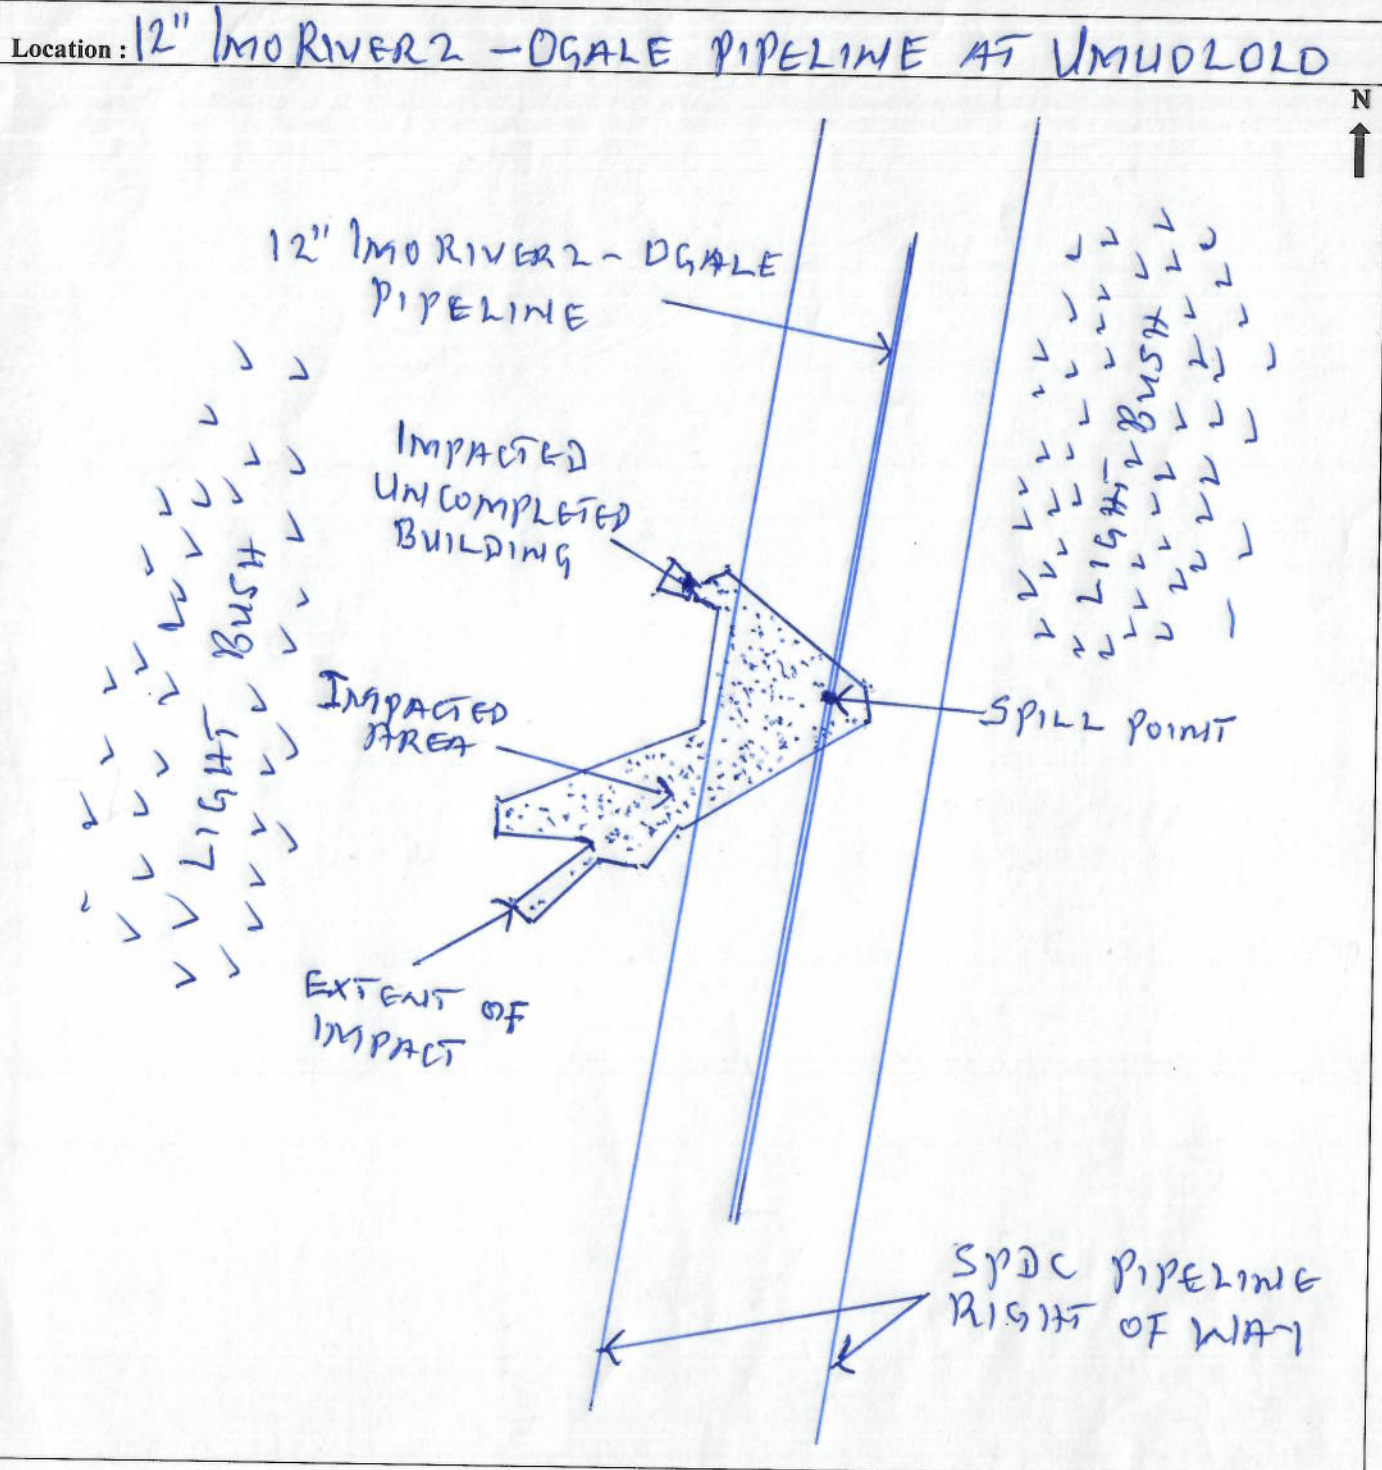 Location : 12" IMO RIVER 2 - OGALE PIPELINE AT UMUOLOLO
N
12" IMO RIVER 2 - OGALE
PIPELINE
IMPACTED
UNCOMPLETED
BUILDING
LIGHT BUSH
LIGHT BUSH
IMPACTED
AREA
SPILL POINT
EXTENT OF
IMPACT
SPDC PIPELINE
RIGHT OF WAY